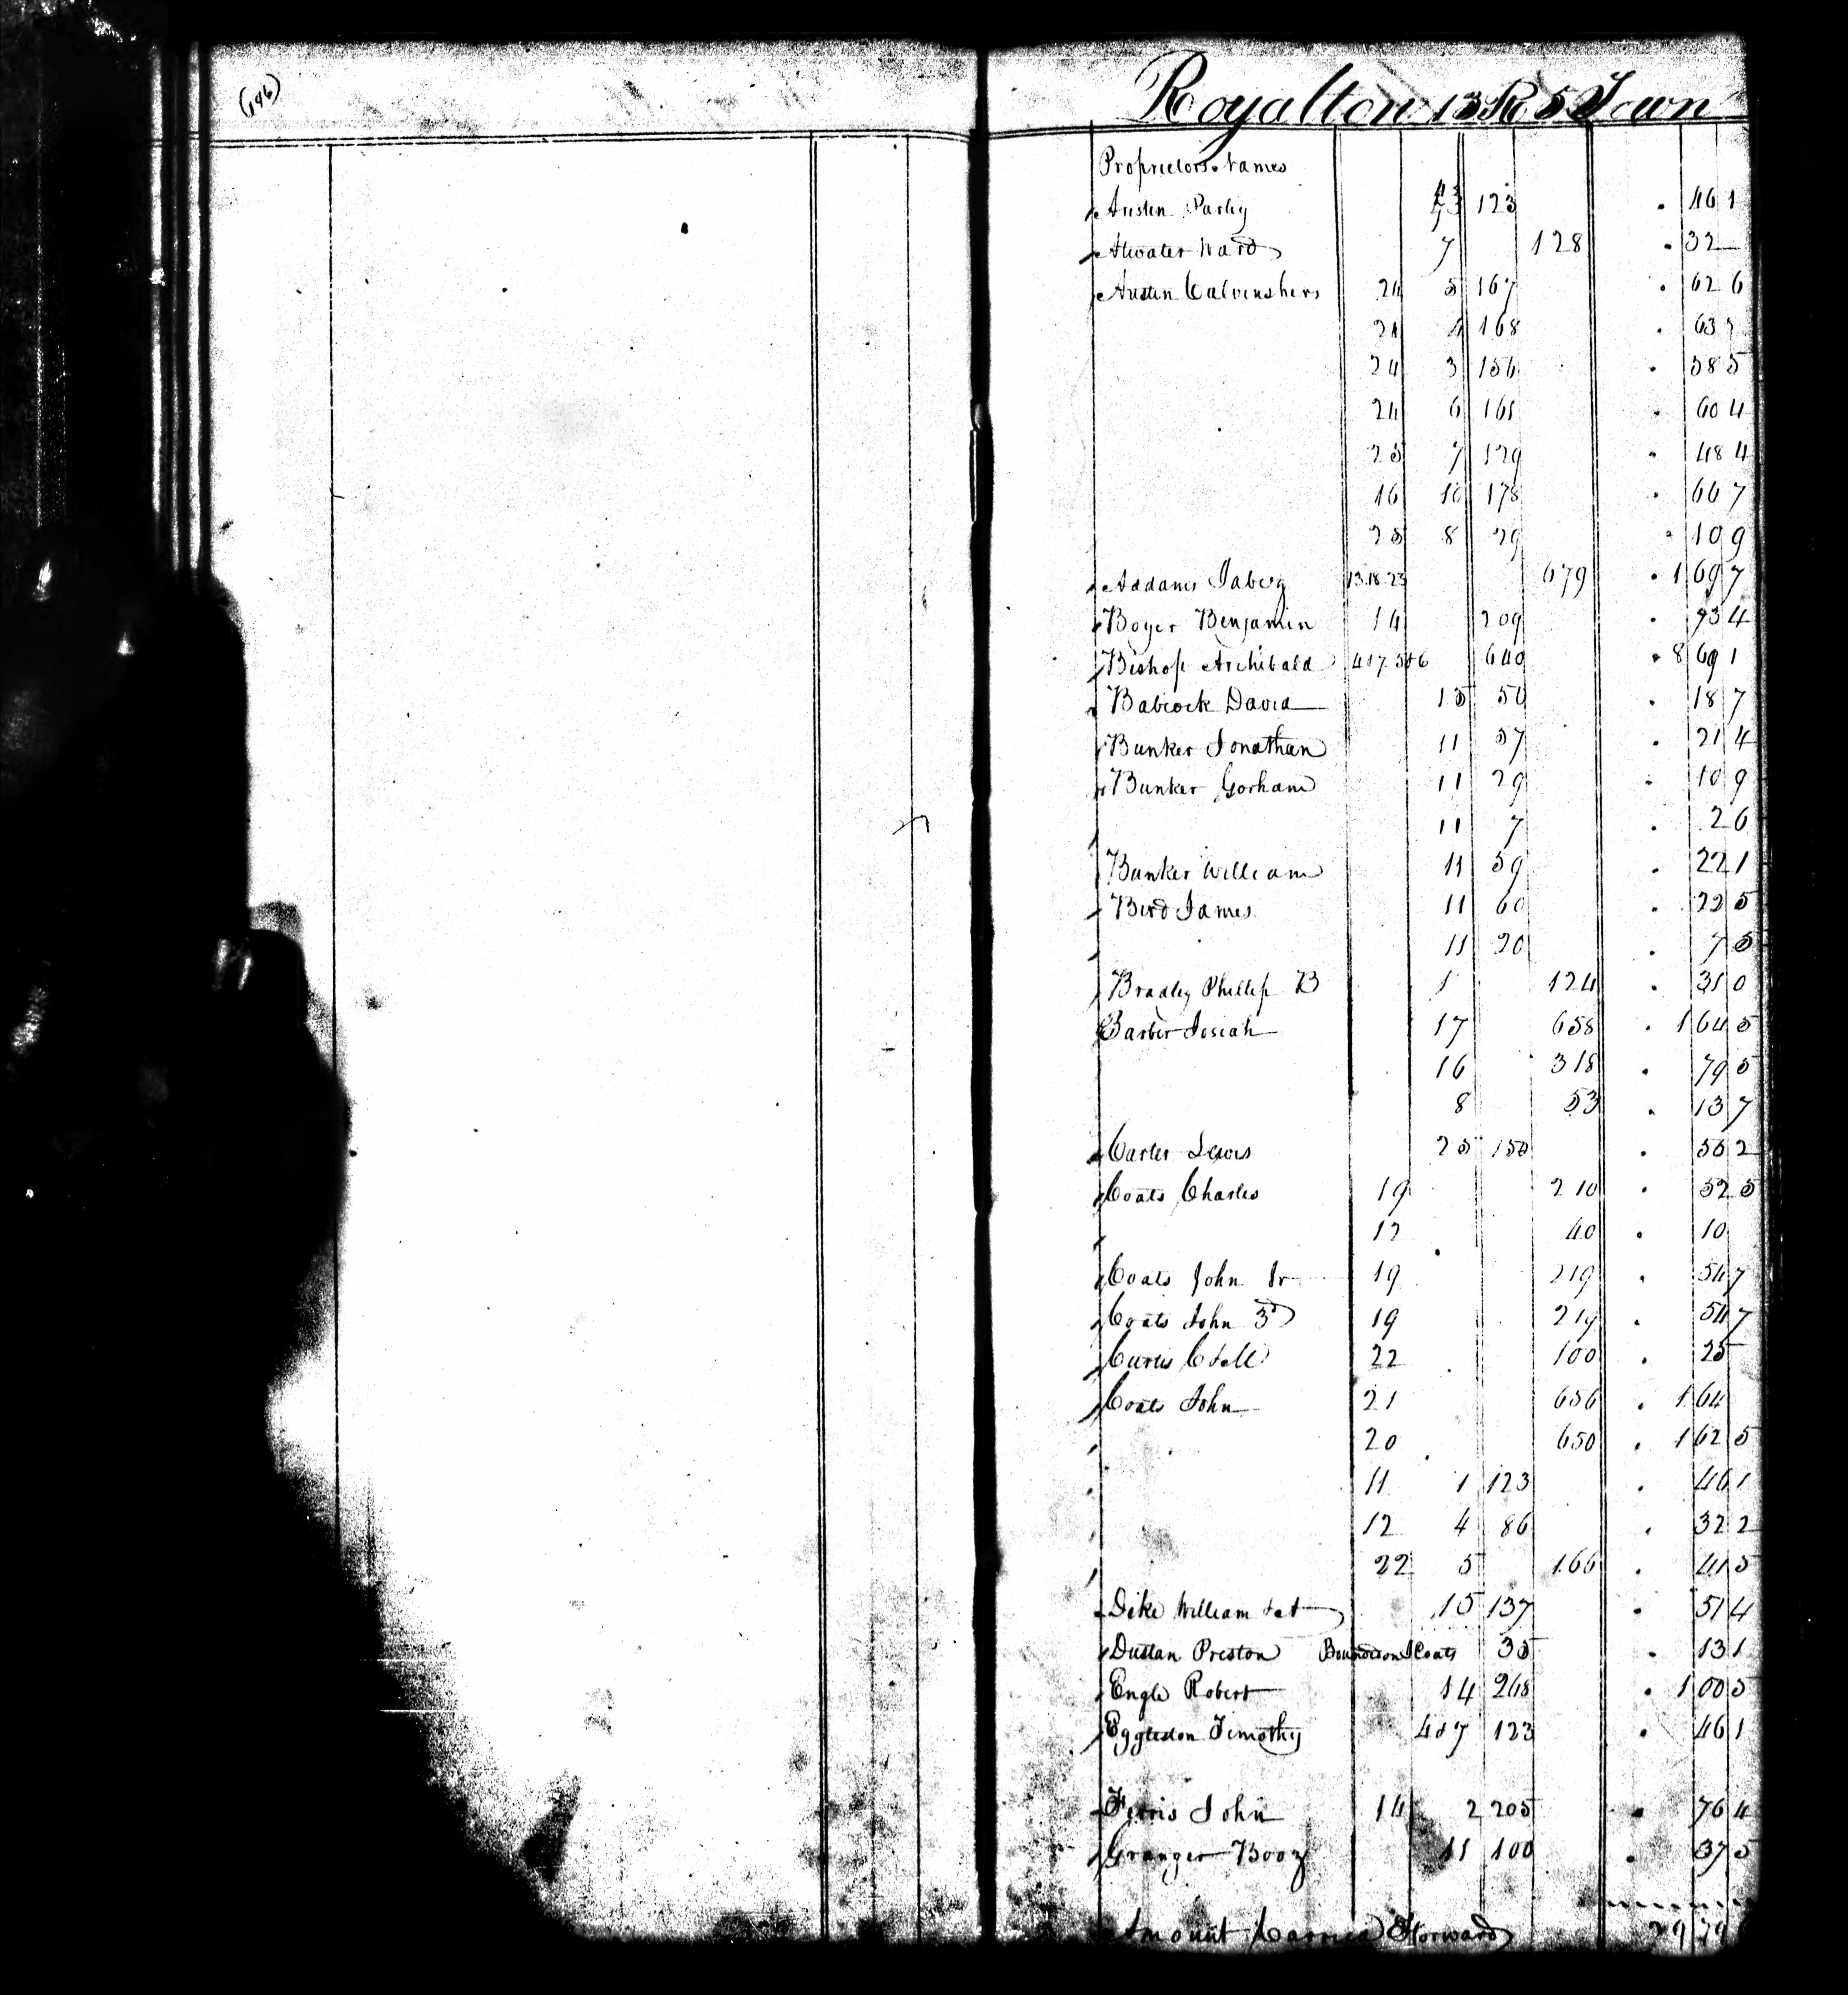 (146)
Royalton 13 R 5 Town
Proprietors Names
Austin Parley 123 46 1
Atwater Ward 7 128 32
Austin Calvins hers 24 5 167 62 6
24 4 168 63
24 3 156 58 5
24 6 161 60 4
25 7 129 48 4
16 10 178 66 7
25 8 29 10 9
Addams 13.18.23 679 1 69 7
Boyer Benjamin 14 209 4
Bishop Archibald 640 8 69 1
Babcock David 15 50 18 7
Bunker Jonathan 11 57 21 4
Bunker Gorham 11 29 10 9
11 7 2 6
Bunker William 11 59 22 1
Bird James 11 60 22 5
11 20 7 5
Bradley Phillip B 1 124 31 0
Barber Josiah 17 658 1 64 5
16 318 79 5
8 53 13 7
Carter Lewis 25 150 56 2
Coats Charles 19 210 52 5
12 40 10
Coats John Jr 19 219 54 7
Coats John 3d 19 219 54 7
Curtis 22 100 25
Coats John 21 656 1 64
20 650 1 62 5
11 1 123 46 1
12 4 86 32 2
22 5 166 41 5
Dike William 15 137 51 4
Dustan Preston Bound on J Coats 35 13 1
Engle Robert 14 268 1 00 5
Eggleston Timothy 4 & 7 123 46 1
Ferris John 14 2 205 76 4
Granger Booz 11 100 37 5
Amount Carried Forward 29